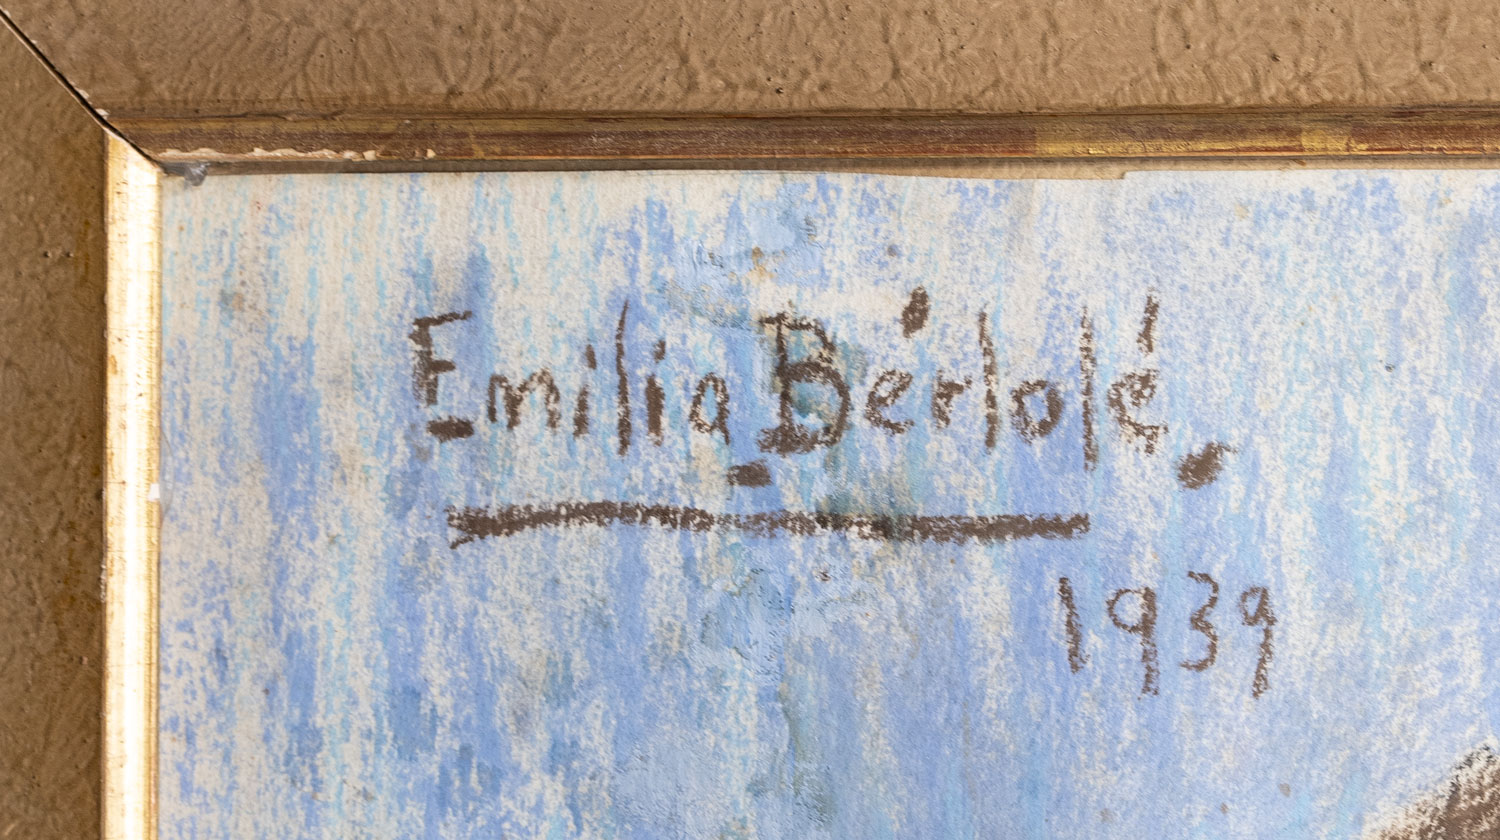 Emilia Bértolé.
1939